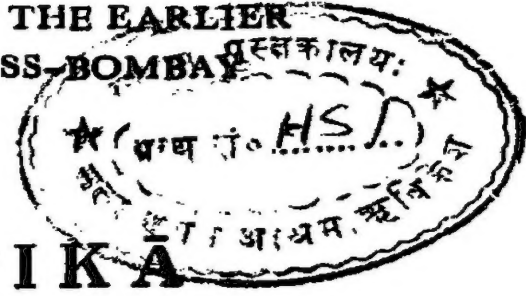 THE EARLIER
SS-BOMBAY
पुस्तकालयः
ग्रन्थ HSD
आश्रम, ऋषिकेश
IKĀ